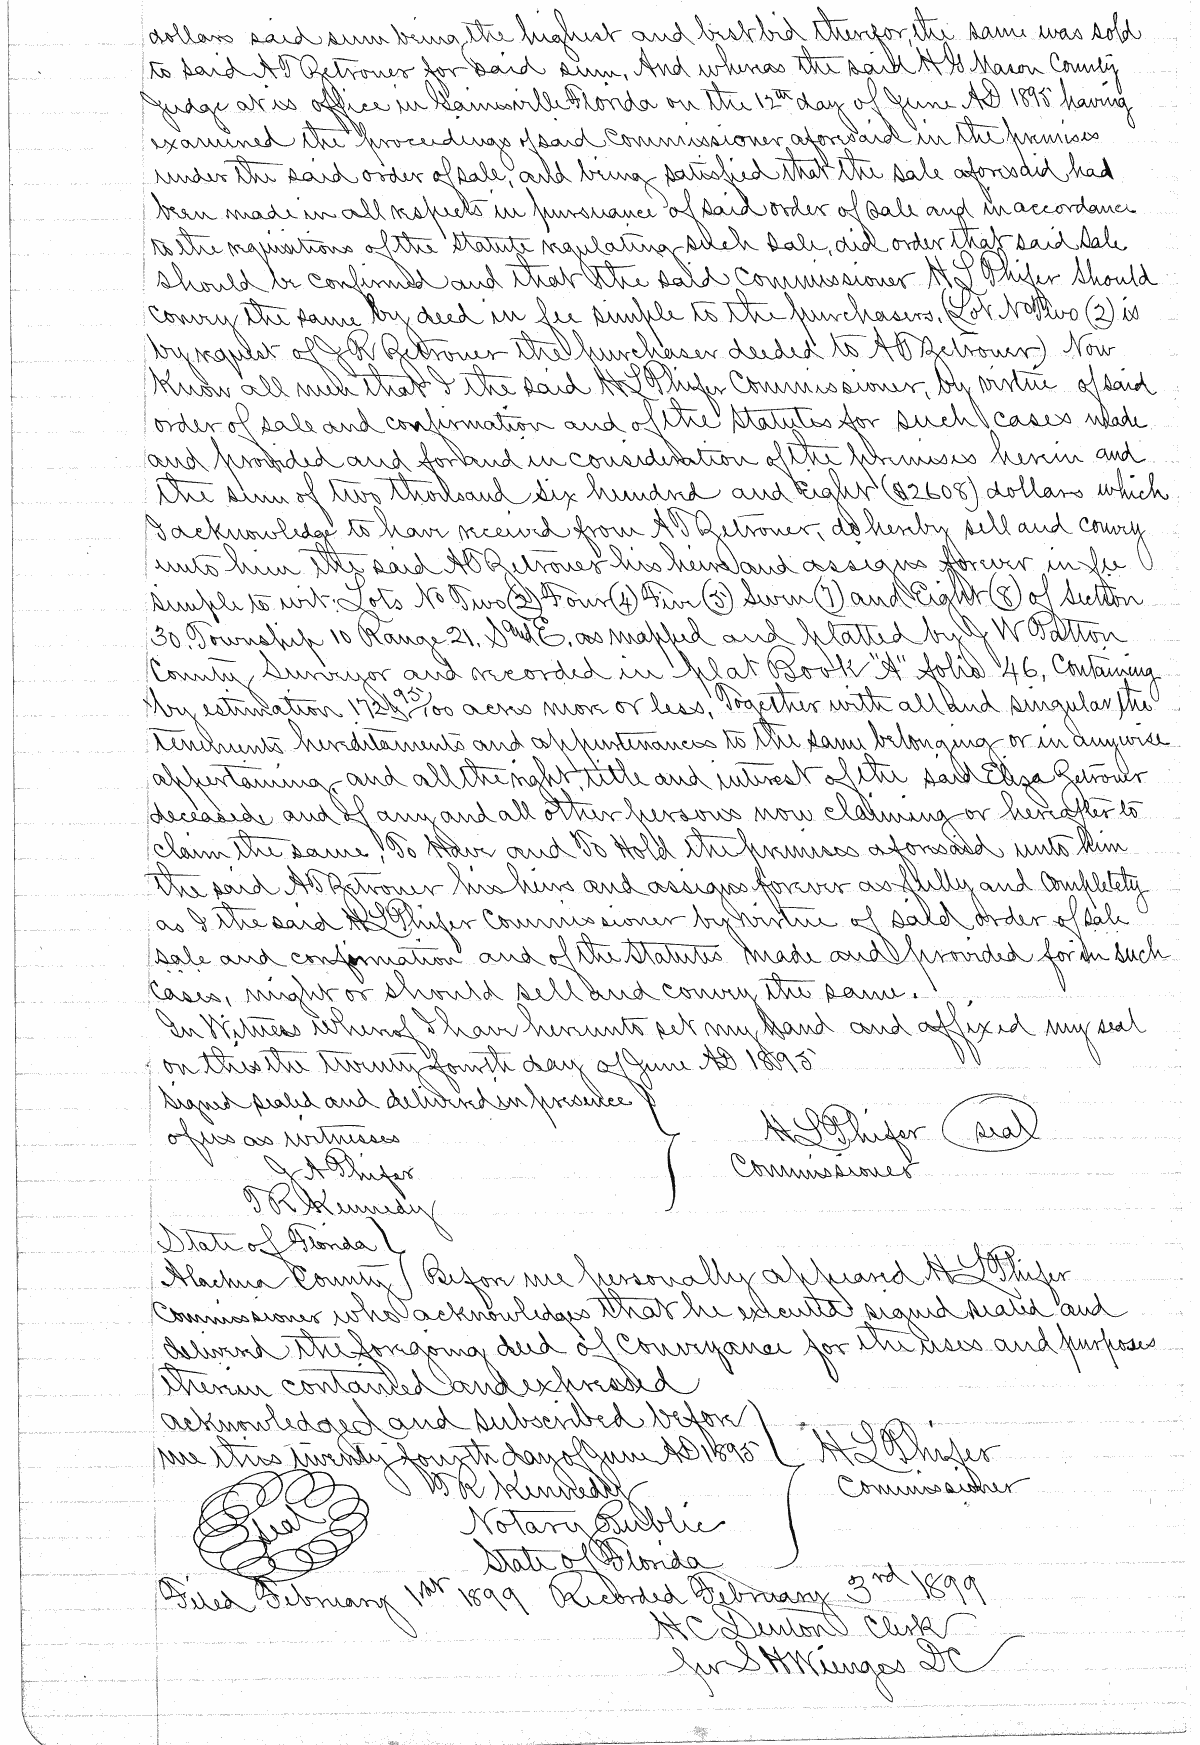 dollars said sum being the highest and best bid therefor, the same was sold
to said A T Zetrouer for said sum, And whereas the said H G Mason County
Judge at is office in Gainesville Florida on the 12th day of June AD 1895 having
examined the proceedings of said Commissioner aforesaid in the premises
under the said order of sale, and being satisfied that the sale aforesaid had
been made in all respects in pursuance of said order of sale and in accordance
to the requisitions of the Statute regulating such sale, did order that said sale
should be confirmed and that the said Commissioner H L Phifer should
convey the same by deed in fee simple to the purchasers. (Lot No Two (2) is
by request of J R Zetrouer the purchaser deeded to A T Zetrouer) Now
Know all men that I the said H L Phifer Commissioner, by virtue of said
order of sale and confirmation and of the Statutes for such cases made
and provided and for and in consideration of the premises herein and
the sum of two thousand six hundred and Eight ($2608) dollars which
I acknowledge to have received from A T Zetrouer, do hereby sell and convey
unto him the said A T Zetrouer his heirs and assigns forever in fee
simple to wit; Lots No Two (2) Four (4) Five (5) Seven (7) and Eight (8) of Section
30. Township 10 Range 21. S and E. as mapped and platted by J W Patton
County Surveyor and recorded in plat Book "A" folio 46, Containing
by estimation 172 95/100 acres more or less, Together with all and singular the
tenements hereditaments and appurtenances to the same belonging or in anywise
appertaining, and all the right, title and interest of the said Eliza Zetrouer
deceased, and of any and all other persons now claiming or hereafter to
claim the same, To Have and To Hold the premises aforesaid unto him
the said A T Zetrouer his heirs and assigns forever as fully and completely
as I the said H L Phifer Commissioner by virtue of said order of sale
sale and confirmation and of the Statutes made and provided for in such
cases, might or should sell and convey the same.
In Witness whereof I have hereunto set my hand and affixed my seal
on this the twenty fourth day of June AD 1895
Signed sealed and delivered in presence
of us as witnesses
H L Phifer (seal)
Commissioner
J A Phifer
T R Kennedy
State of Florida
Alachua County Before me personally appeared H L Phifer
Commissioner who acknowledges that he executed signed sealed and
delivered the foregoing deed of Conveyance for the uses and purposes
therein contained and expressed
acknowledged and subscribed before
me this twenty fourth day of June AD 1895
H L Phifer
Commissioner
T R Kennedy
Seal
Notary Public
State of Florida
Filed February 1st 1899 Recorded February 3rd 1899
H C Denton Clerk
per S H Wienges DC